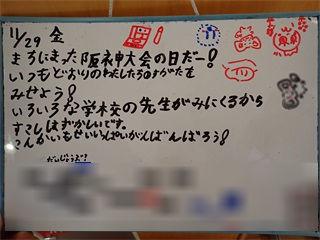 11/29 金
まちにまった阪神大会の日だー!
いつもどおりのわたしたちのすがたを
みせよう!
いろいろな学校の先生がみにくるから
すこしはずかしいです。
こんかいもせいいっぱいがんばんばろう!
だいじょうぶ?